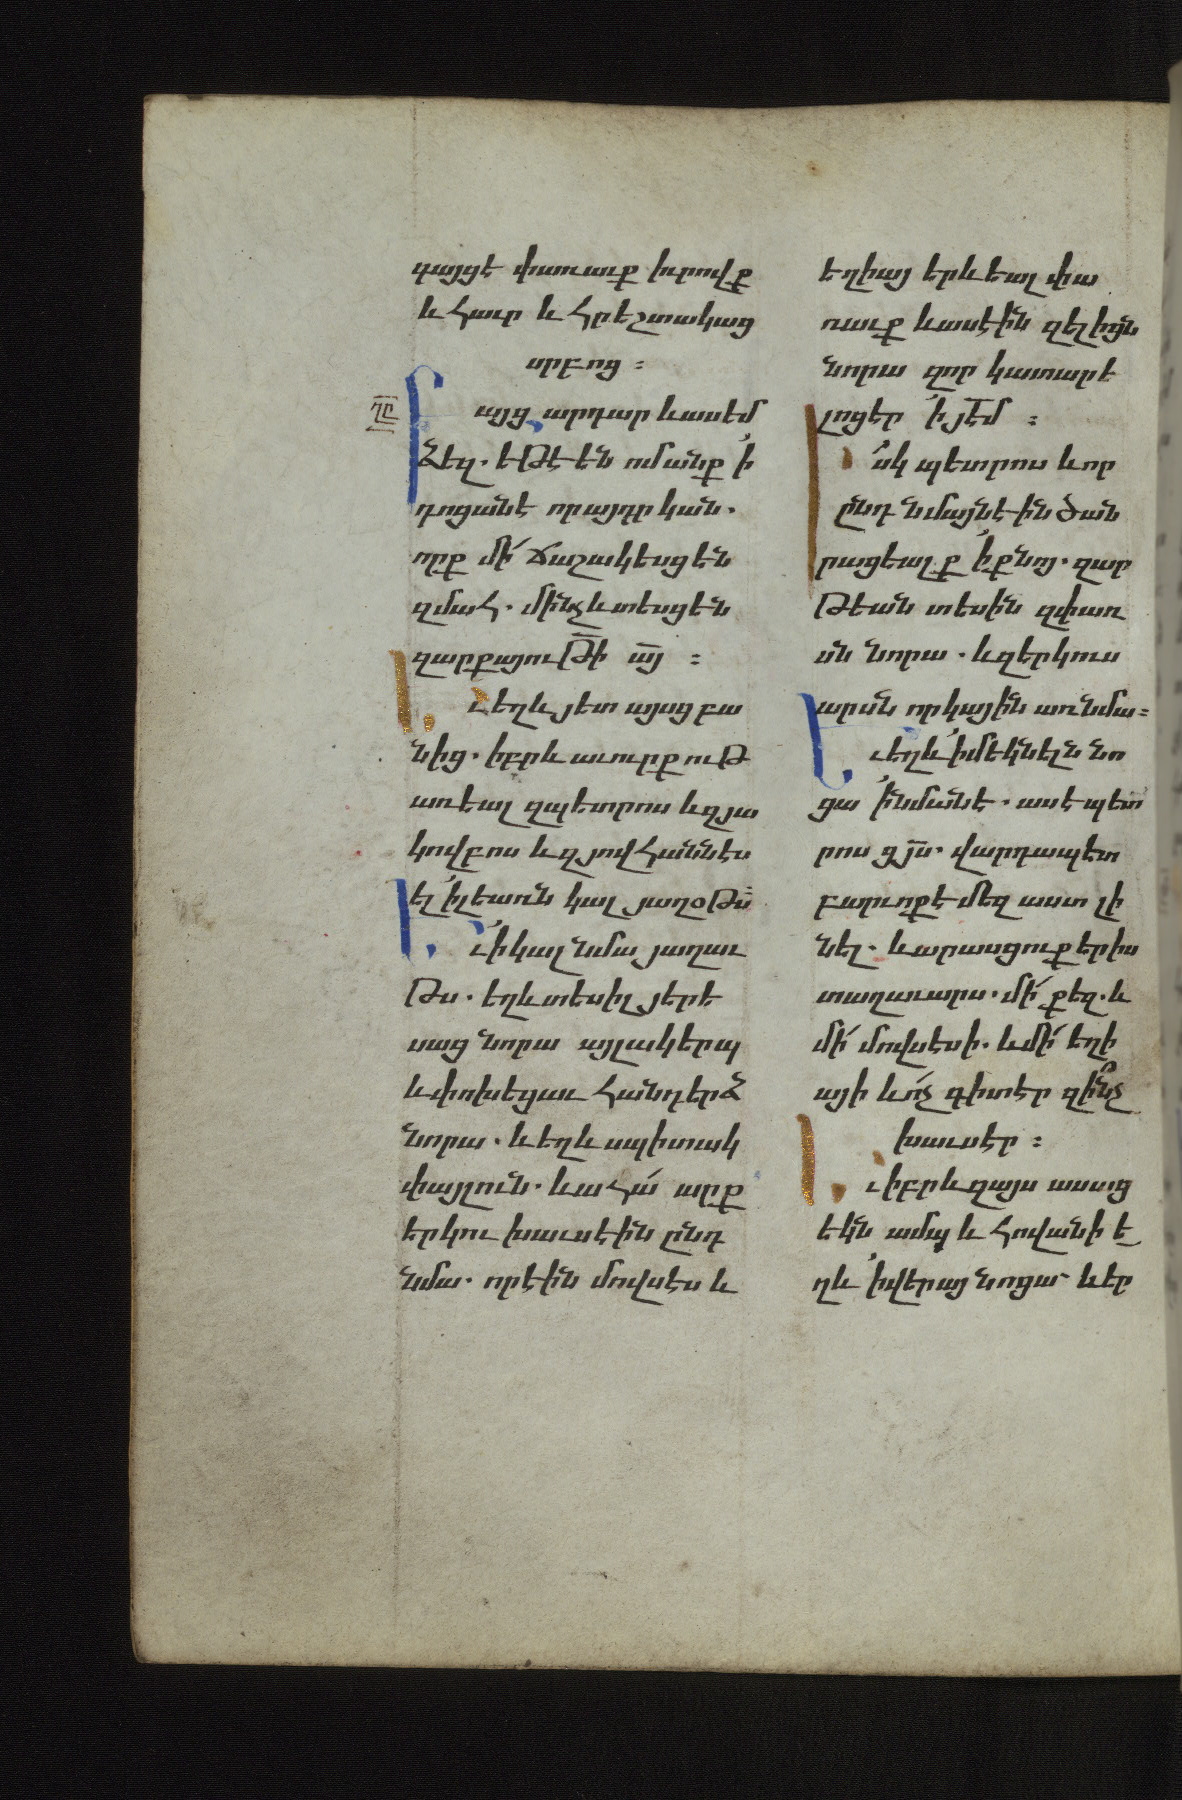 գայցէ փառաւք իւրովք
և հաւր և հրեշտակաց
սրբոց ։
Բայց արդար և ասեմ
ձեզ . եթէ են ոմանք ՚ի
դոցանէ որ այդր կան .
որք մի՛ ճաշակեսցեն
զմահ . մինչև տեսցեն
զարքայութի այ ։
Եւ եղև յետ այսց բա
նից . իբրև աւուրք ութ
առեալ զպետրոս և զյա
կովբոս և զյովհաննէս
ել ՚ի լեառն կալ յաղօթս ։
Եւ ՚ի կալ նմա յաղաւ
թս . եղև տեսիլ յերե
սաց նորա այլակերպ
և փոխեցաւ հանդերձ
նորա . և եղև սպիտակ
փայլուն . և ահա՛ արք
երկու խաւսէին ընդ
նմա . որ էին մովսէս և
եղիայ երևեալ փա
ռաւք և ասէին զելիցն
նորա զոր կատարե
լոցեր ՚ի յեմ ։
Իսկ պետրոս և որ
ընդ նմայն էին ծան
րացեալք ՚ի քնոյ . զար
թեան տեսին զփառ
սն նորա . և զերկուս
արսն որ կային առ նմա ։
Եւ եղև ՚ի մեկնելն նո
ցա ՚ի նմանէ . ասէ պետ
րոս ցյս . վարդապետ
բարւոք է մեզ աստ լի
նել . և արասցուք երիս
տաղաւարս . մի՛ քեզ . և
մի՛ մովսէսի . և մի՛ եղի
այի և ո՛չ գիտէր զի՞նչ
խաւսէր ։
Եւ իբրև զայս ասաց
եկն ամպ և հովանի ե
ղև ՚ի վերայ նոցա և եր
ղը